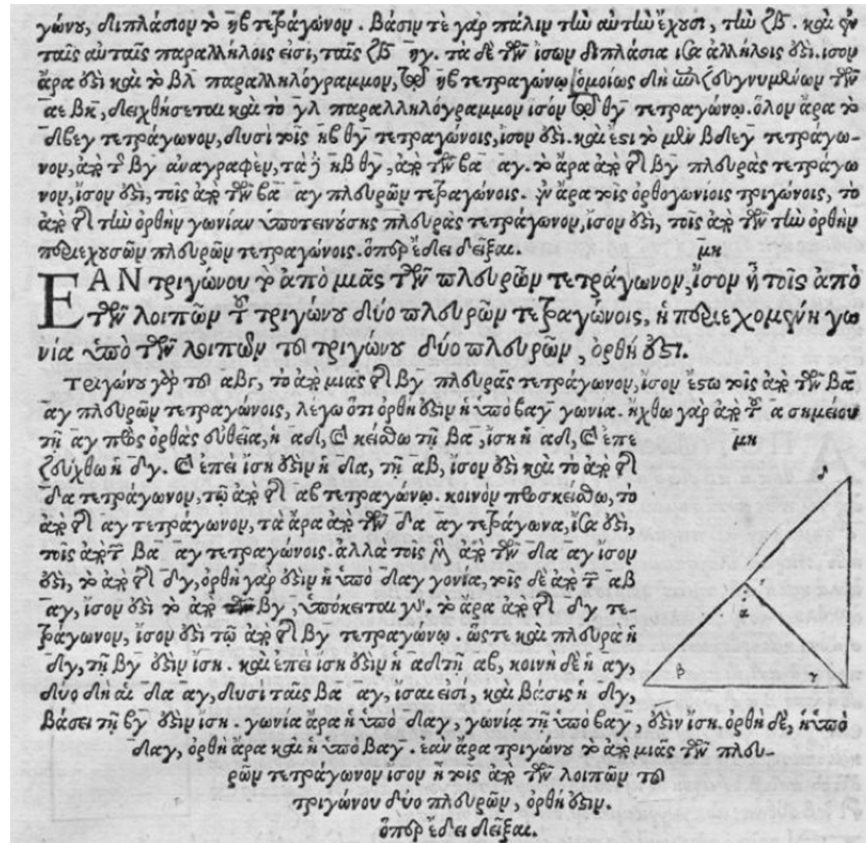 γώνου, διπλάσιον τὸ ηβ τετράγωνον. βάσιν τε γὰρ πάλιν τὴν αὐτὴν ἔχουσι, τὴν ζβ. καὶ ἐν
ταῖς αὐταῖς παραλλήλοις εἰσὶ, ταῖς ζβ ηγ. τὰ δὲ τῶν ἴσων διπλάσια ἴσα ἀλλήλοις ἐστί. ἴσον
ἄρα ἐστὶ καὶ τὸ βλ παραλληλόγραμμον, τῷ ηβ τετραγώνῳ ὁμοίως δὴ ἐπιζευγνυμένων τῶν
αε βκ, δειχθήσεται καὶ τὸ γλ παραλληλόγραμμον ἴσον τῷ θγ τετραγώνῳ. ὅλον ἄρα τὸ
δβεγ τετράγωνον, δυσὶ τοῖς ηβ θγ τετραγώνοις, ἴσον ἐστί. καὶ ἔστι τὸ μὲν βδεγ τετράγω-
νον, ἀπὸ τῆς βγ ἀναγραφὲν, τὰ δὲ ηβ θγ, ἀπὸ τῶν βα αγ. τὸ ἄρα ἀπὸ τῆς βγ πλευρᾶς τετράγω
νον, ἴσον ἐστὶ, τοῖς ἀπὸ τῶν βα αγ πλευρῶν τετραγώνοις. ἐν ἄρα τοῖς ὀρθογωνίοις τριγώνοις, τὸ
ἀπὸ τῆς τὴν ὀρθὴν γωνίαν ὑποτεινούσης πλευρᾶς τετράγωνον, ἴσον ἐστὶ, τοῖς ἀπὸ τῶν τὴν ὀρθὴν
περιεχουσῶν πλευρῶν τετραγώνοις. ὅπερ ἔδει δεῖξαι. μη
ΕΑΝ τριγώνου τὸ ἀπὸ μιᾶς τῶν πλευρῶν τετράγωνον, ἴσον ᾖ τοῖς ἀπὸ
τῶν λοιπῶν τοῦ τριγώνου δύο πλευρῶν τετραγώνοις, ἡ περιεχομένη γω
νία ὑπὸ τῶν λοιπῶν τοῦ τριγώνου δύο πλευρῶν, ὀρθή ἐστι.
Τριγώνου γὰρ τοῦ αβγ, τὸ ἀπὸ μιᾶς τῆς βγ πλευρᾶς τετράγωνον, ἴσον ἔστω τοῖς ἀπὸ τῶν βα
αγ πλευρῶν τετραγώνοις, λέγω ὅτι ὀρθή ἐστιν ἡ ὑπὸ βαγ γωνία. ἤχθω γὰρ ἀπὸ τοῦ α σημείου
τῇ αγ πρὸς ὀρθὰς εὐθεῖα, ἡ αδ, καὶ κείσθω τῇ βα, ἴση ἡ αδ, καὶ ἐπε μη
ζεύχθω ἡ δγ. καὶ ἐπεὶ ἴση ἐστὶν ἡ δα, τῇ αβ, ἴσον ἐστὶ καὶ τὸ ἀπὸ τῆς
δα τετράγωνον, τῷ ἀπὸ τῆς αβ τετραγώνῳ. κοινὸν προσκείσθω, τὸ
ἀπὸ τῆς αγ τετράγωνον, τὰ ἄρα ἀπὸ τῶν δα αγ τετράγωνα, ἴσα ἐστὶ,
τοῖς ἀπὸ τῶν βα αγ τετραγώνοις. ἀλλὰ τοῖς μὲν ἀπὸ τῶν δα αγ ἴσον
ἐστὶ, τὸ ἀπὸ τῆς δγ, ὀρθὴ γάρ ἐστιν ἡ ὑπὸ δαγ γονία, τοῖς δὲ ἀπὸ τῶν αβ
αγ, ἴσον ἐστὶ τὸ ἀπὸ τῆς βγ, ὑπόκειται γάρ. τὸ ἄρα ἀπὸ τῆς δγ τε-
τράγωνον, ἴσον ἐστὶ τῷ ἀπὸ τῆς βγ τετραγώνῳ. ὥστε καὶ πλευρὰ ἡ
δγ, τῇ βγ ἐστὶν ἴση. καὶ ἐπεὶ ἴση ἐστὶν ἡ αδ τῇ αβ, κοινὴ δὲ ἡ αγ,
δύο δὴ αἱ δα αγ, δυσὶ ταῖς βα αγ, ἴσαι εἰσὶ, καὶ βάσις ἡ δγ,
βάσει τῇ βγ ἐστὶν ἴση. γωνία ἄρα ἡ ὑπὸ δαγ, γωνίᾳ τῇ ὑπὸ βαγ, ἐστὶν ἴση. ὀρθὴ δὲ, ἡ ὑπὸ
δαγ, ὀρθὴ ἄρα καὶ ἡ ὑπὸ βαγ. ἐὰν ἄρα τριγώνου τὸ ἀπὸ μιᾶς τῶν πλευ-
ρῶν τετράγωνον ἴσον ᾖ τοῖς ἀπὸ τῶν λοιπῶν τοῦ
τριγώνου δύο πλευρῶν, ὀρθή ἐστιν.
ὅπερ ἔδει δεῖξαι.
δ
α
β γ